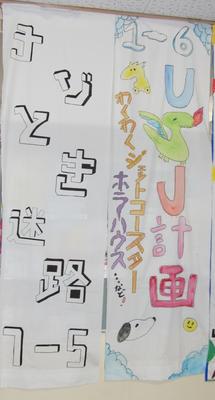 ナゾとき迷路
1-5
1-6
USJ計画
わくわくジェットコースター
ホラーハウス
……など。